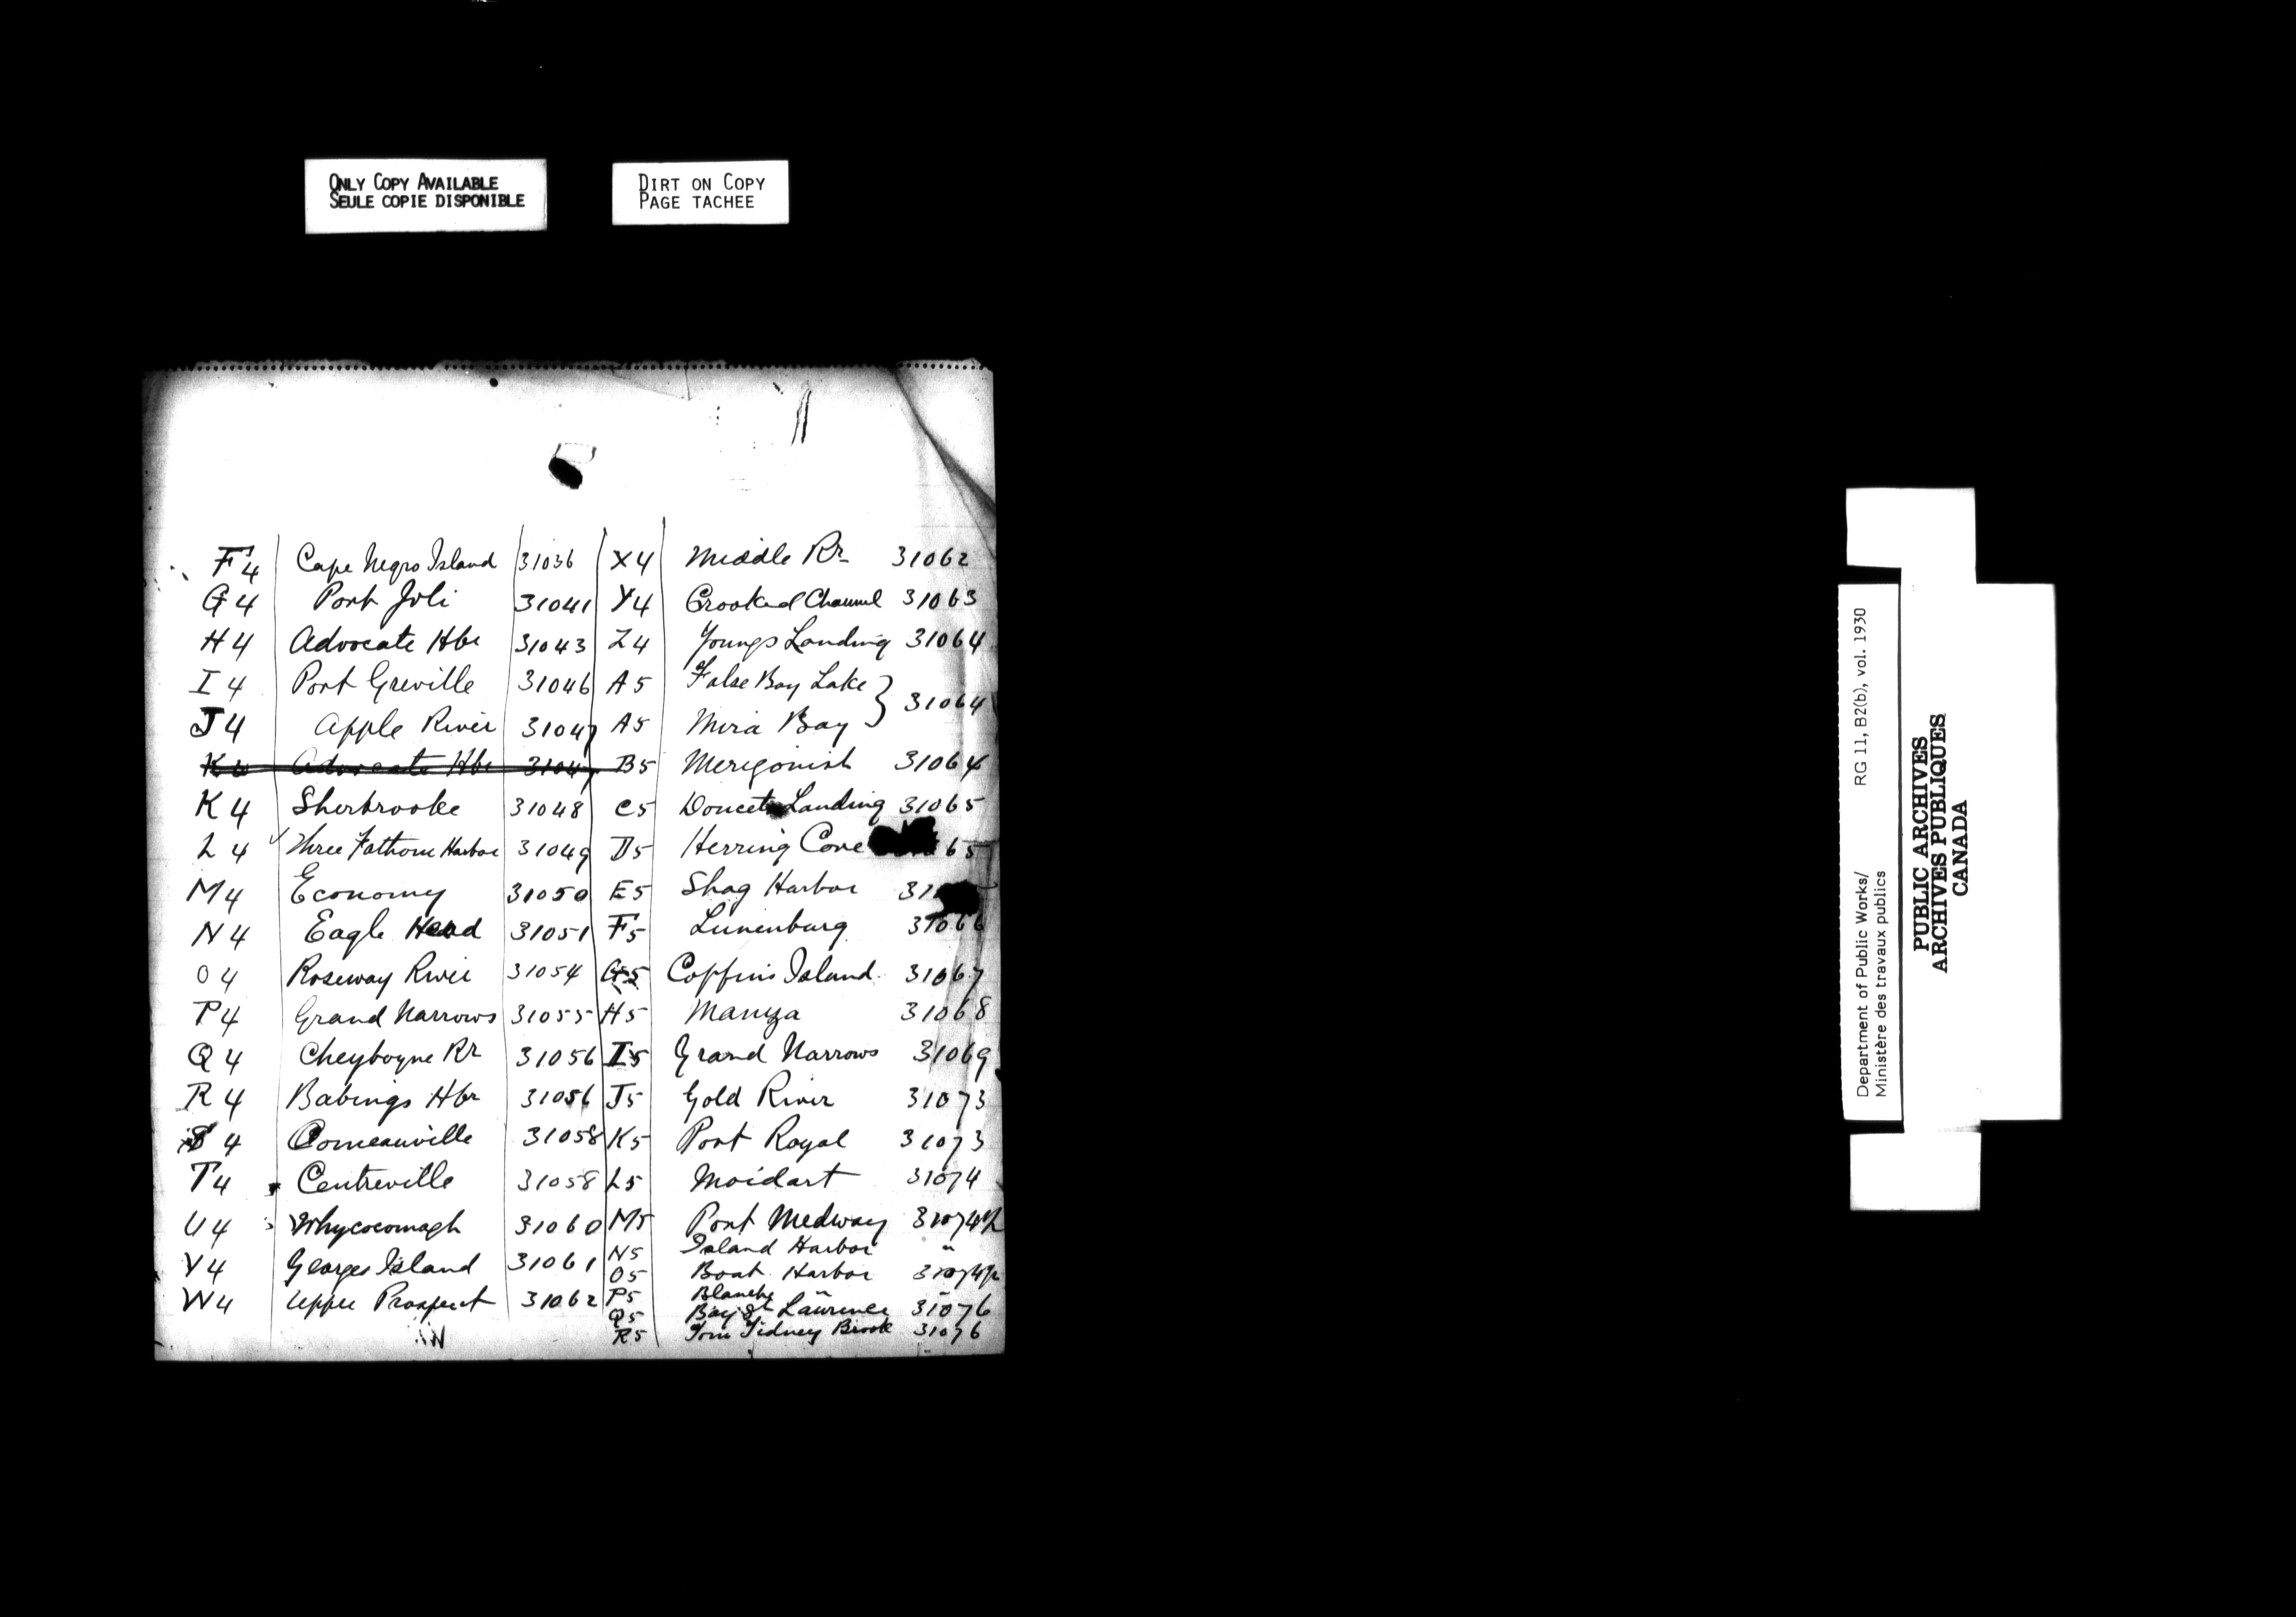 ONLY COPY AVAILABLE
SEULE COPIE DISPONIBLE
DIRT ON COPY
PAGE TACHEE
F4 Cape Negro Island 31036 X4 Middle Rr 31062
G4 Port Joli 31041 Y4 Crooked Channel 31063
H4 Advocate Hbr 31043 Z4 Youngs Landing 31064
I4 Port Greville 31046 A5 False Bay Lake } 31064
J4 Apple River 31047 A5 Mira Bay
K4 Advocate Hbr 31047 B5 Merigonish 31064
K4 Sherbrooke 31048 C5 Doucets Landing 31065
L4 Three Fathom Harbor 31049 D5 Herring Cove 65
M4 Economy 31050 E5 Shag Harbor 31
N4 Eagle Head 31051 F5 Lunenburg 31066
O4 Roseway River 31054 G5 Coffins Island 31067
P4 Grand Narrows 31055 H5 31068
Q4 Cheyboyne Rr 31056 I5 Grand Narrows 31069
R4 Babings Hbr 31056 J5 Gold River 31073
S4 Comeauville 31058 K5 Port Royal 31073
T4 Centreville 31058 L5 Moidart 31074
U4 Whycocomagh 31060 M5 Port Medway 31074½
N5 Island Harbor "
V4 Georges Island 31061 O5 Boat Harbor 31074½
W4 Upper Prospect 31062 P5 Blanche " "
Q5 Bay St Lawrence 31076
R5 Tom Tidney Brook 31076
Department of Public Works/ RG 11, B2(b), vol. 1930
Ministère des travaux publics
PUBLIC ARCHIVES
ARCHIVES PUBLIQUES
CANADA